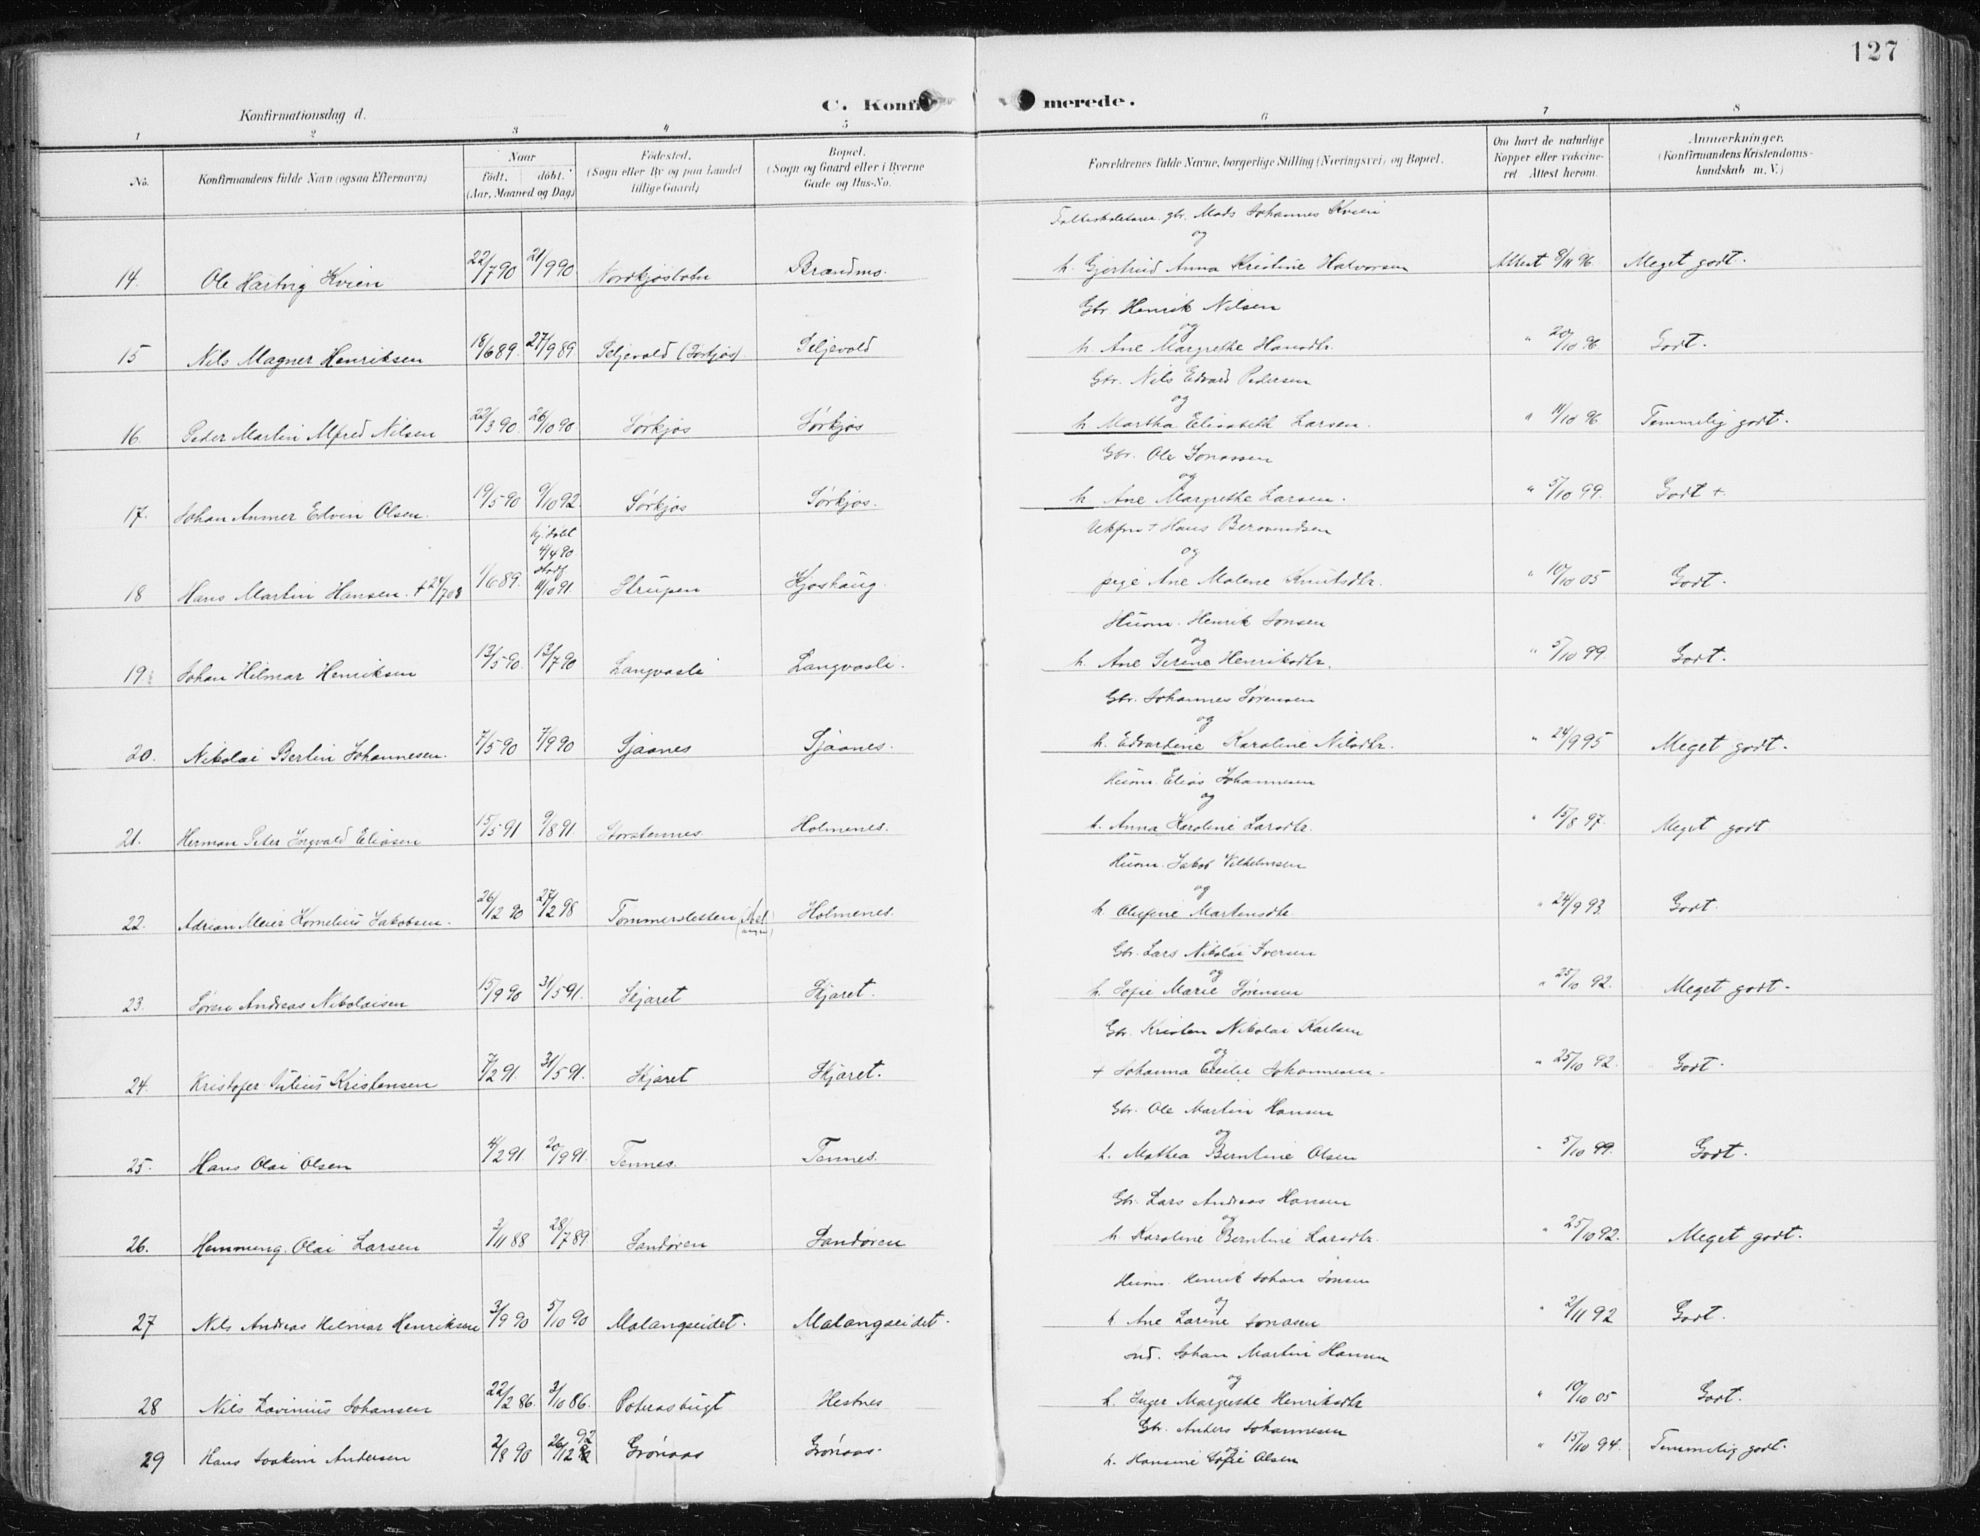 127
C. Konfir merede.
Konfirmationsdag d.
1 2 3 4 5 6 7 8
No. Konfirmandens fulde Navn (ogsaa Efternavn) Naar födt. döbt. (Aar, Maaned og Dag) Födested. (Sogn eller By og paa Landet tillige Gaard) Bopæl. (Sogn og Gaard eller i Byerne Gade og Hus-No. Forældrenes fulde Navne, borgerlige Stilling (Næringsvei) og Bopæl. Om havt de naturlige Kopper eller vakcineret Attest herom. Anmærkninger. (Konfirmandens Kristendomskundskab m. V.)
gbr. Mads Johannes Kvien
og
14. Ole Hartvig Kvien 22/7 90 21/9 90 Nordkjosbotn Brandmo. h. Gjertrud Anna Kristine Halvorsen Attest 9/11 96 Meget godt.
Gbr. Henrik Nilsen
og
15 Nils Magner Henriksen 18/6 89. 27/9 89. Seljevold (Sørkjos) Seljevold h. Ane Margrethe Hansdtr. " 20/10 96 Godt.
Gbr. Nils Edvard Pedersen
og
16. Peder Martin Alfred Nilsen 22/3 90. 26/10 90 Sørkjos Sørkjos h. Martha Elisabeth Larsen. " 11/10 96 Temmelig godt.
Gbr. Ole Jonassen
og
17. Johan Anmer Edvin Olsen. 19/5 90 9/10 92 Sørkjos Sørkjos. h. Ane Margrethe Larsen. " 5/10 99. Godt +
Ukfm + Hans Berountsen
og
18 Hans Martin Hansen. + 24/7 08 1/6 89. hj. døbt 4/4 90 stadf 11/10 91 Strupen Kjoshaug. pige Ane Malene Knutsdtr. " 10/10 05 Godt.
Husm. Henrik Jonsen
og
19. Johan Hilmar Henriksen 13/5 90. 13/7 90 Langvasli Langvasli. h. Ane Serine Henriksdtr. " 5/10 99. Godt.
Gbr. Johannes Sørensen
og
20. Nikolai Bertin Johannesen. 7/5 90 7/9 90 Sjaanes Sjaanes. h. Edvardine Karoline Nilsdtr. " 24/9 95 Meget godt.
Husm. Elias Johannesen
og
21. Herman Peter Ingvald Eliasen 15/5 91 9/8 91. Storstennes. Holmenes. h. Anna Karoline Larsdtr. " 15/8 97. Meget godt
Husm. Jakob Vilhelmsen
og
22. Adrian Meier Kornelius Jakobsen. 26/12 90 27/2 98 Tommersletten Holmenes. h. Olufine Martinsdtr " 24/9 93. Godt.
Gbr. Lars Nikolai Iversen
og
23. Søren Andreas Nikolaisen 15/9 90 31/5 91. Skjæret Skjæret. h. Sofie Marie Sørensen " 25/10 92. Meget godt.
Gbr. Kristen Nikolai Karlsen
og
24. Kristofer Julius Kristensen 7/2 91. 31/5 91. Skjæret Skjæret. + Johanna Cecilie Johannesen. " 25/10 92. Godt.
Gbr. Ole Martin Hansen
og
25. Hans Olai Olsen 4/2 91. 20/9 91. Tennes. Tennes. h. Mathea Berntine Olsen " 5/10 99. Godt.
Gbr. Lars Andreas Hansen
og
26. Hemming Olai Larsen 3/11 88 28/7 89. Sandøren Sandøren h Karoline Berntine Larsdtr. " 25/10 92. Meget godt.
Husm. Henrik Johan Jonsen
og
27 Nils Andreas Hilmar Henriksen 3/9 90 5/10 90 Malangseidet. Malangseidet. h Ane Larine Jonasen " 2/11 92 Godt.
Ind. Johan Martin Hansen
og
28 Nils Lavinius Johansen 22/2 86. 3/10 86. Poterasbugt Hestnes h. Inger Margrethe Henriksdtr " 10/10 05 Godt.
Gbr. Anders Johannesen
og
29 Hans Joakim Andersen 2/8 90 26/12 92 Grønaas Grønaas. h. Hansine Sofie Olsen " 15/10 94. Temmelig godt.